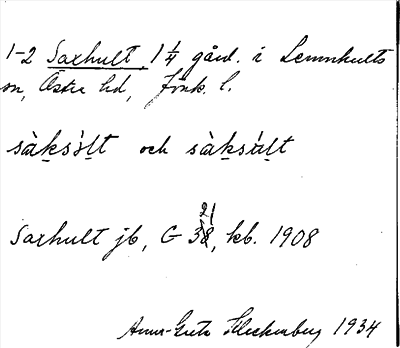 1-2 Saxhult, 1 1/4 gård. i Lemnhults
sn, Östra hd, Jönk. l.
sàksòlt och sàksàlt
Saxhult jb, G 38, kb. 1908
Anna-Greta 1934